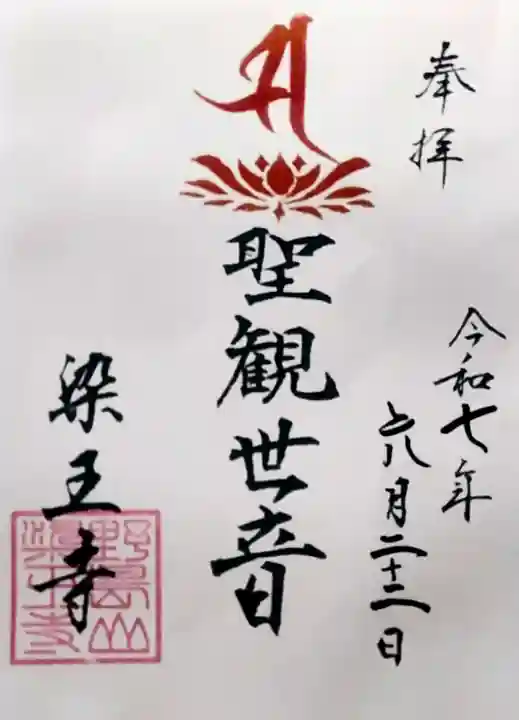 奉拝
令和七年
六月二十二日
𑖭
聖観世音
染王寺